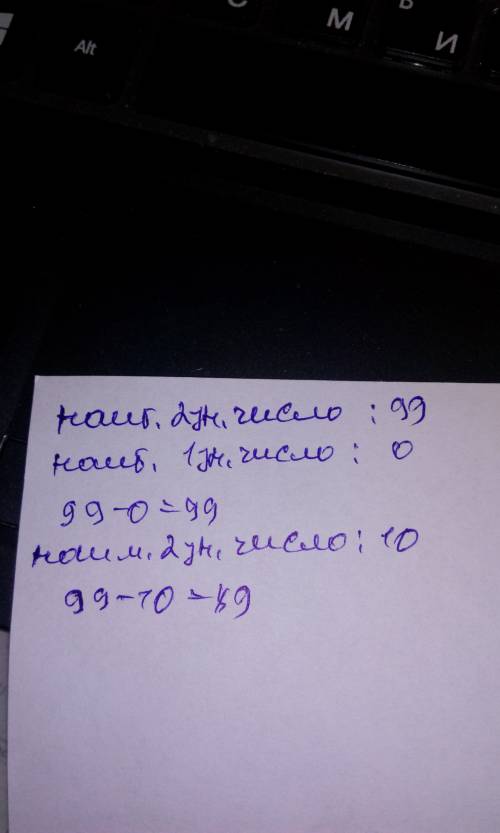 Alt
С
М
Ь
И
наиб. 2зн. число : 99
наиб. 1зн. число : 0
99-0=99
наим. 2зн. число : 10
99-10=89